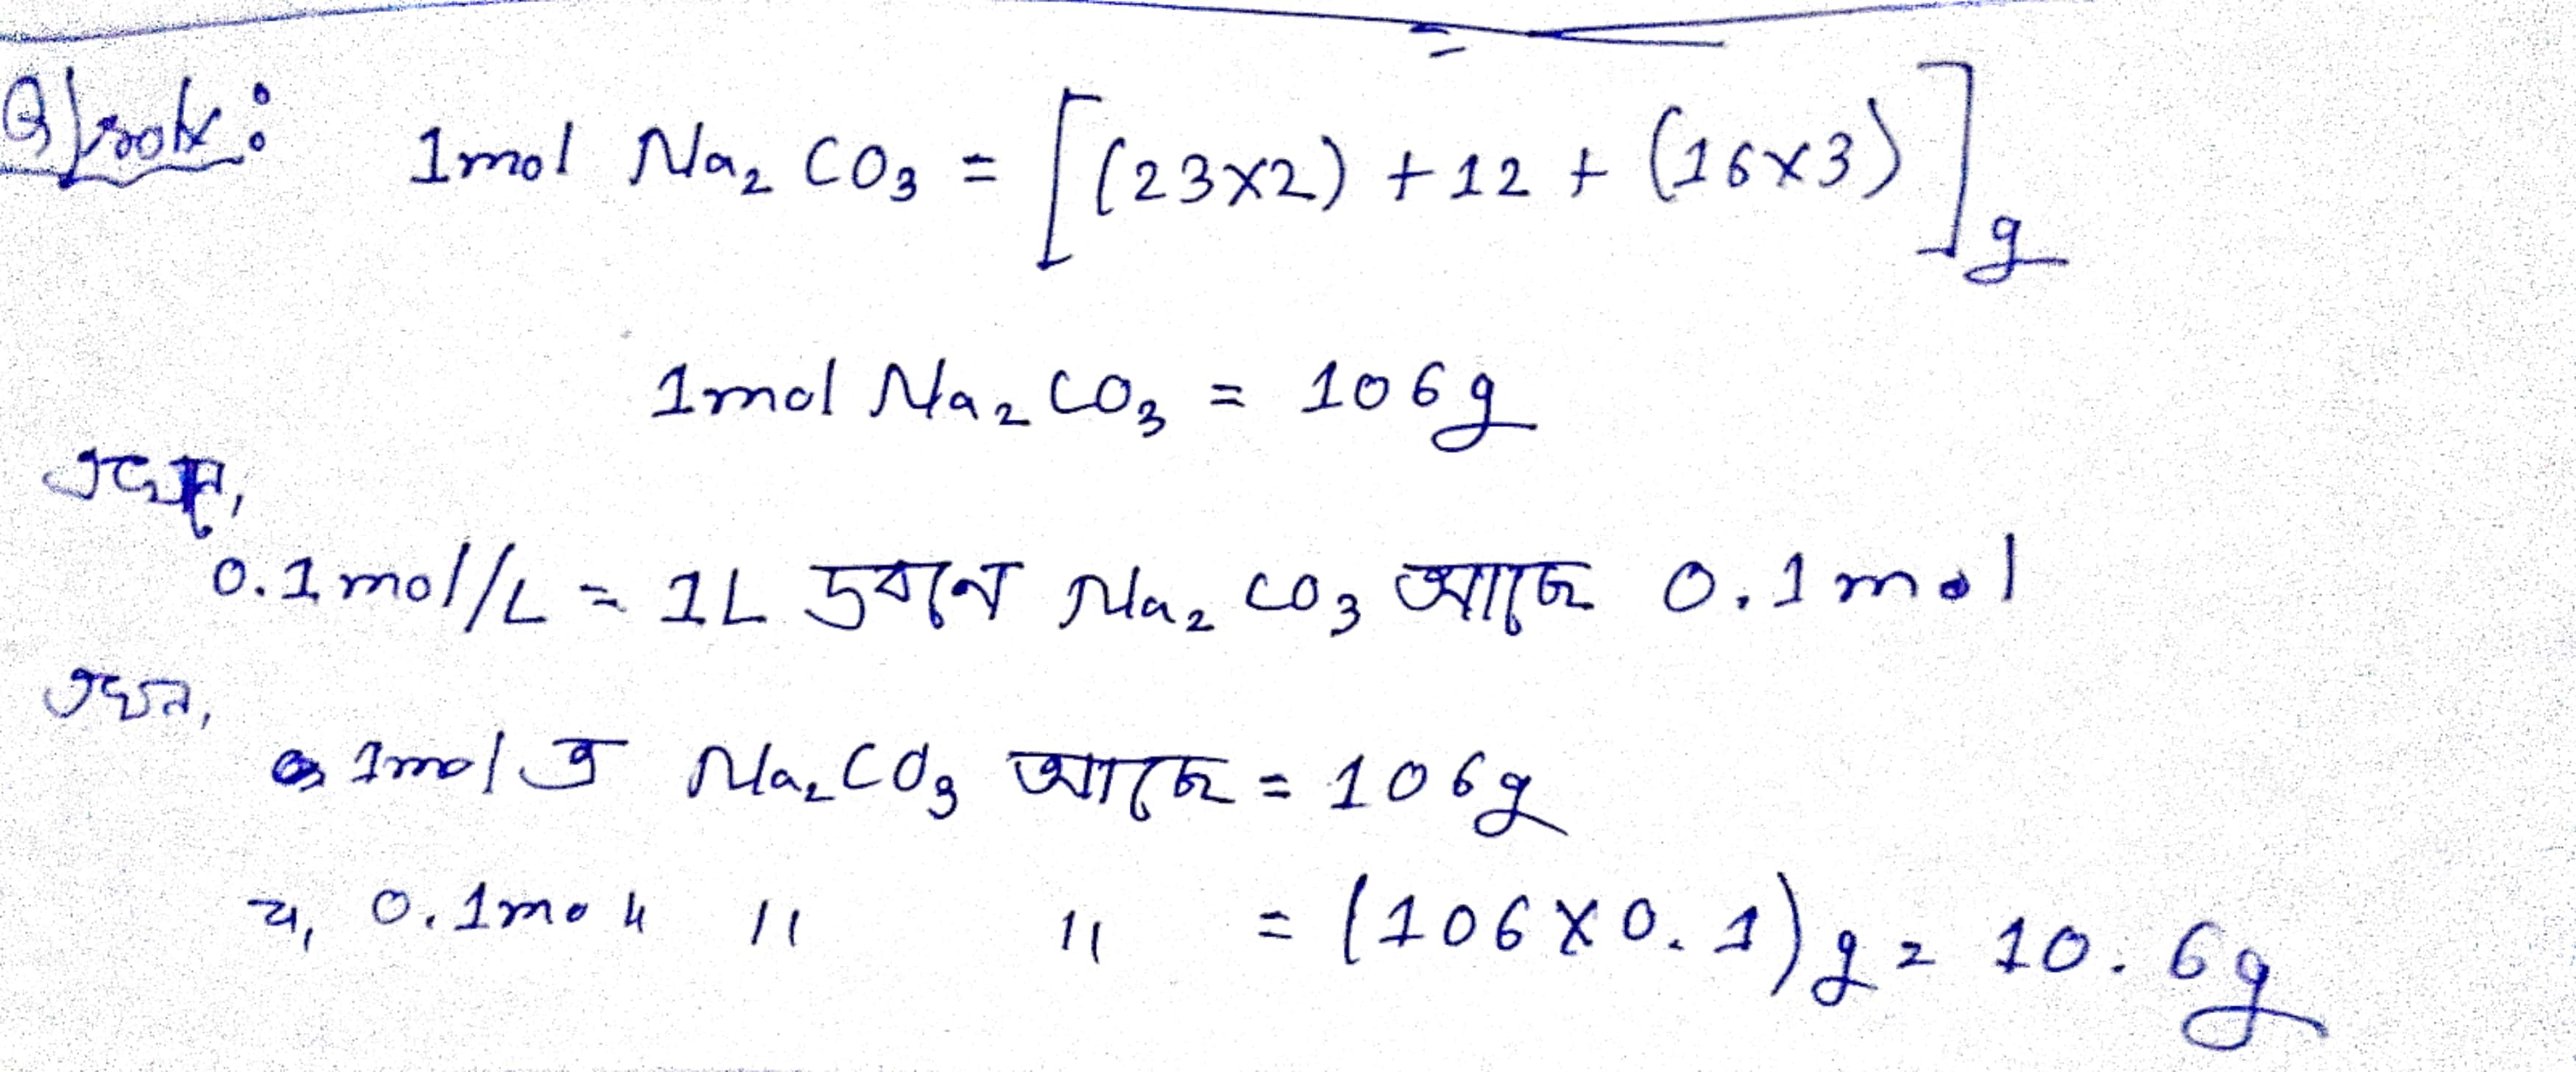 Solⁿ: 1mol Na₂CO₃ = [(23×2) + 12 + (16×3)] g
1mol Na₂CO₃ = 106g
এখন,
0.1mol/L = 1L দ্রবনে Na₂CO₃ আছে 0.1mol
এখন,
1mol এ Na₂CO₃ আছে = 106g
∴, 0.1mol " " = (106×0.1) g = 10.6g